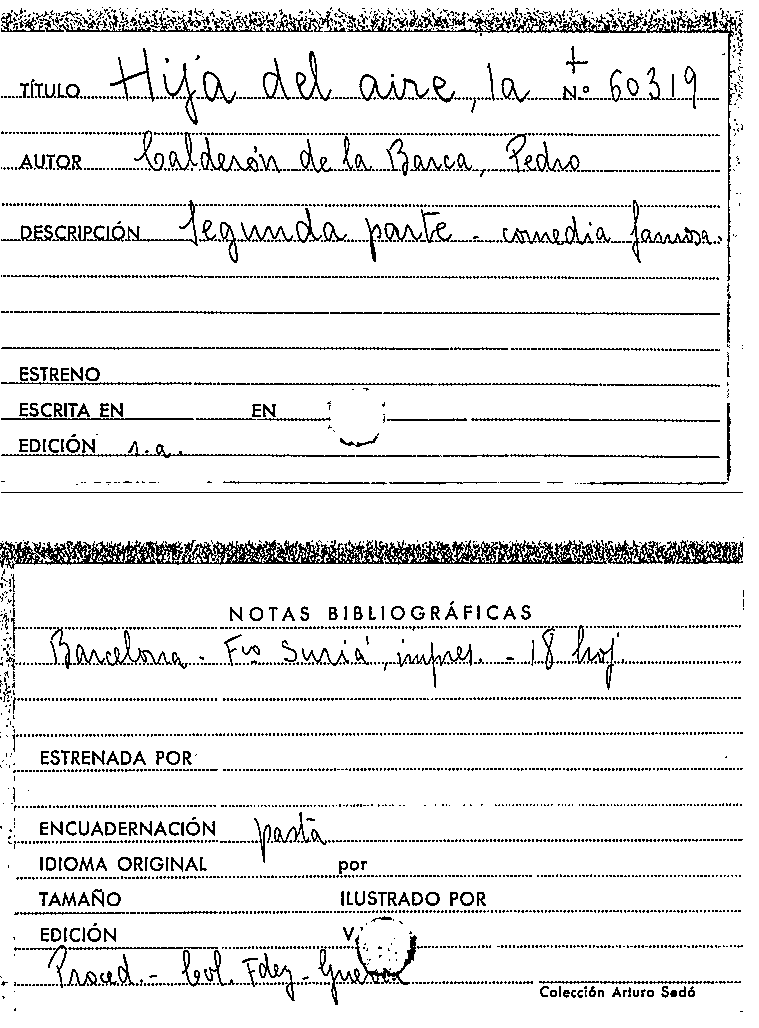 TÍTULO Hija del aire, la + N.º 60319
AUTOR Calderón de la Barca, Pedro
DESCRIPCIÓN Segunda parte - comedia famosa.
ESTRENO
ESCRITA EN EN
EDICIÓN s.a.
NOTAS BIBLIOGRÁFICAS
Barcelona - Fco Suriá, impres. - 18 hoj.
ESTRENADA POR
ENCUADERNACIÓN pasta
IDIOMA ORIGINAL por
TAMAÑO ILUSTRADO POR
EDICIÓN V.
Proced - Col. Fdez - Guerra
Colección Arturo Sedó